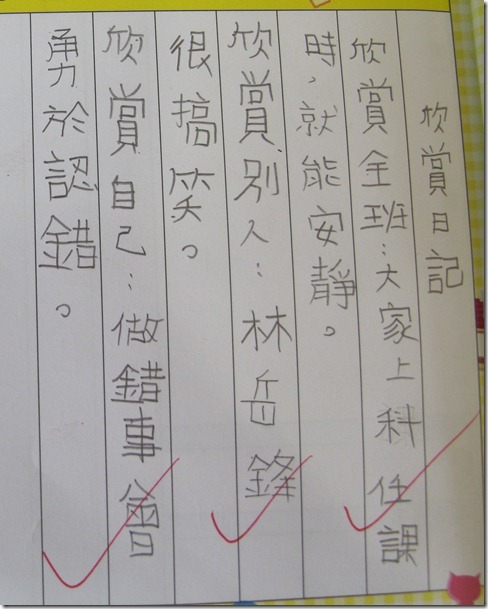 欣賞日記
欣賞全班：大家上科任課
時，就能安靜。
欣賞別人：林岳鋒
很搞笑。
欣賞自己：做錯事會
勇於認錯。